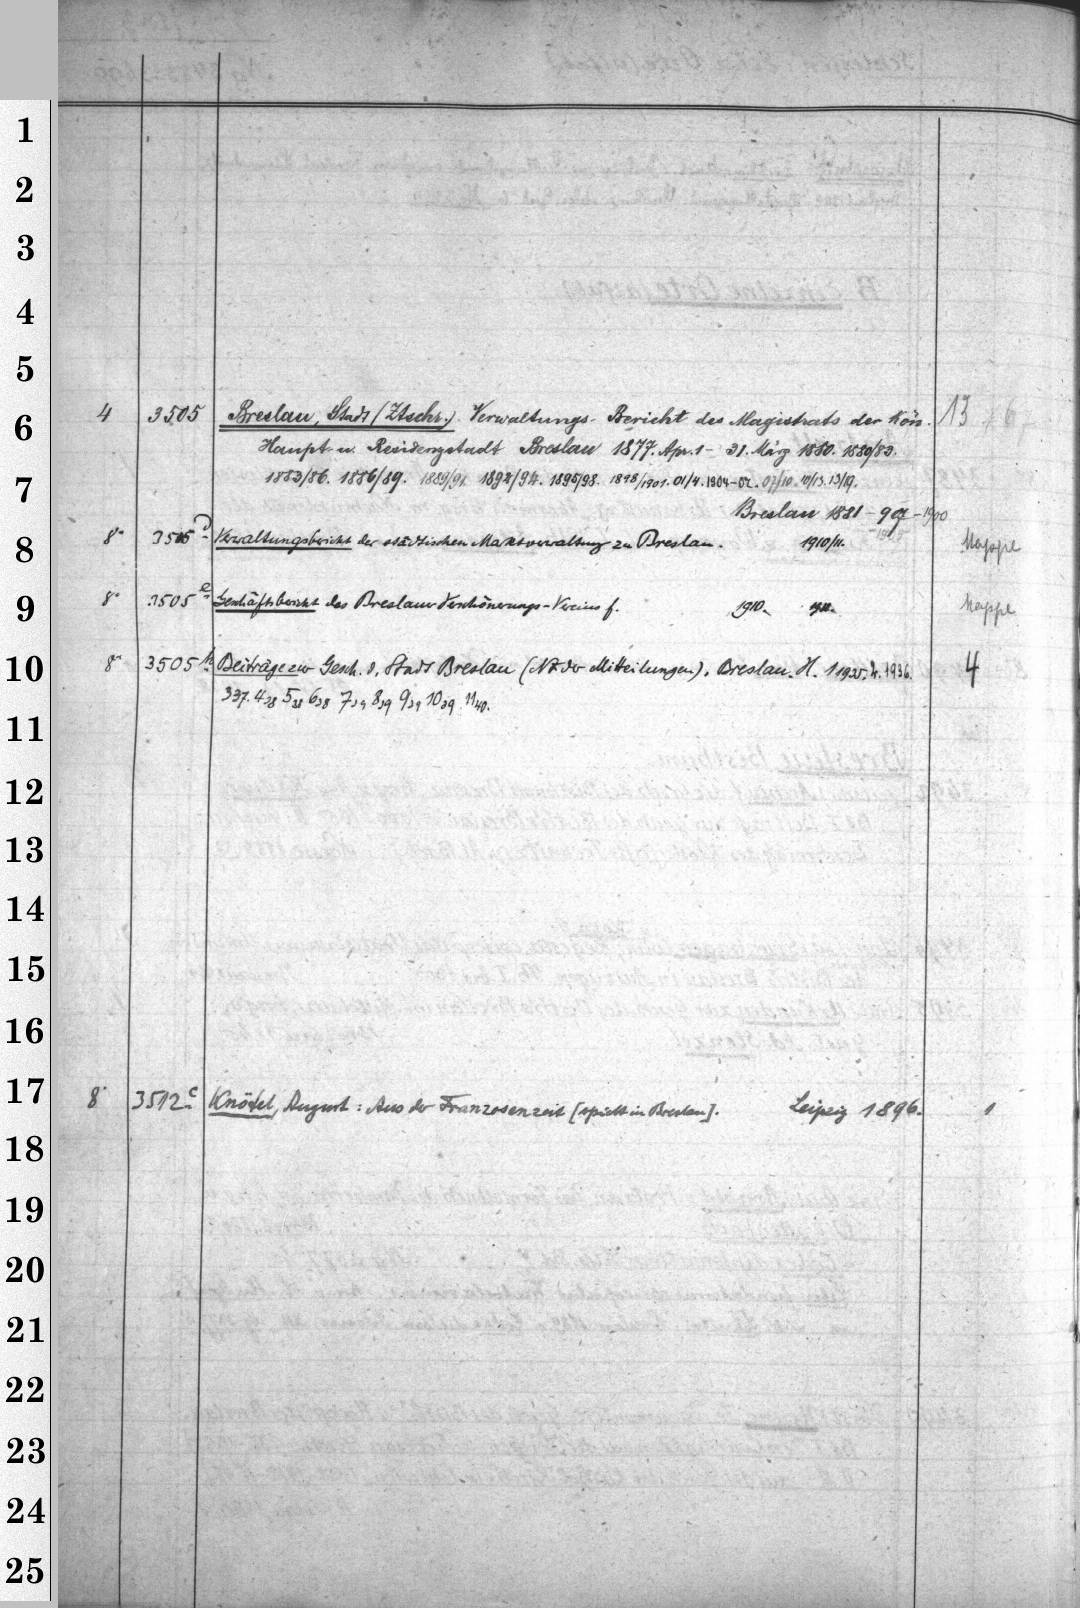 1
2
3
4
5
6
7
8
9
10
11
12
13
14
15
16
17
18
19
20
21
22
23
24
25
4 3505 Breslau, Stadt (Ztschr.) Verwaltungs-Bericht des Magistrats der Kön. 13
Haupt- u. Residenzstadt Breslau 1877. Apr. 1 - 31. März 1880. 1880/83.
1883/86. 1886/89. 1889/91. 1892/94. 1895/98. 1898/1901. 01/4. 1904-07. 07/10. 10/13. 13/19.
Breslau 1881-
8° 3505 d Verwaltungsbericht der städtischen Marktverwaltung zu Breslau. 1910/11. Mappe
8° 3505 e Geschäftsbericht des Breslauer Verschönerungs-Vereins f. 1910. Mappe
8° 3505 h Beiträge zur Gesch. d. Stadt Breslau (N. F. der Mitteilungen). Breslau. H. 1 1935. 2. 1936. 4
3 37. 4 38 5 38 6 38 7 39 8 39 9 39 10 39 11 40.
8° 3512 c Knötel, August: Aus der Franzosenzeit [spielt in Breslau]. Leipzig 1896. 1